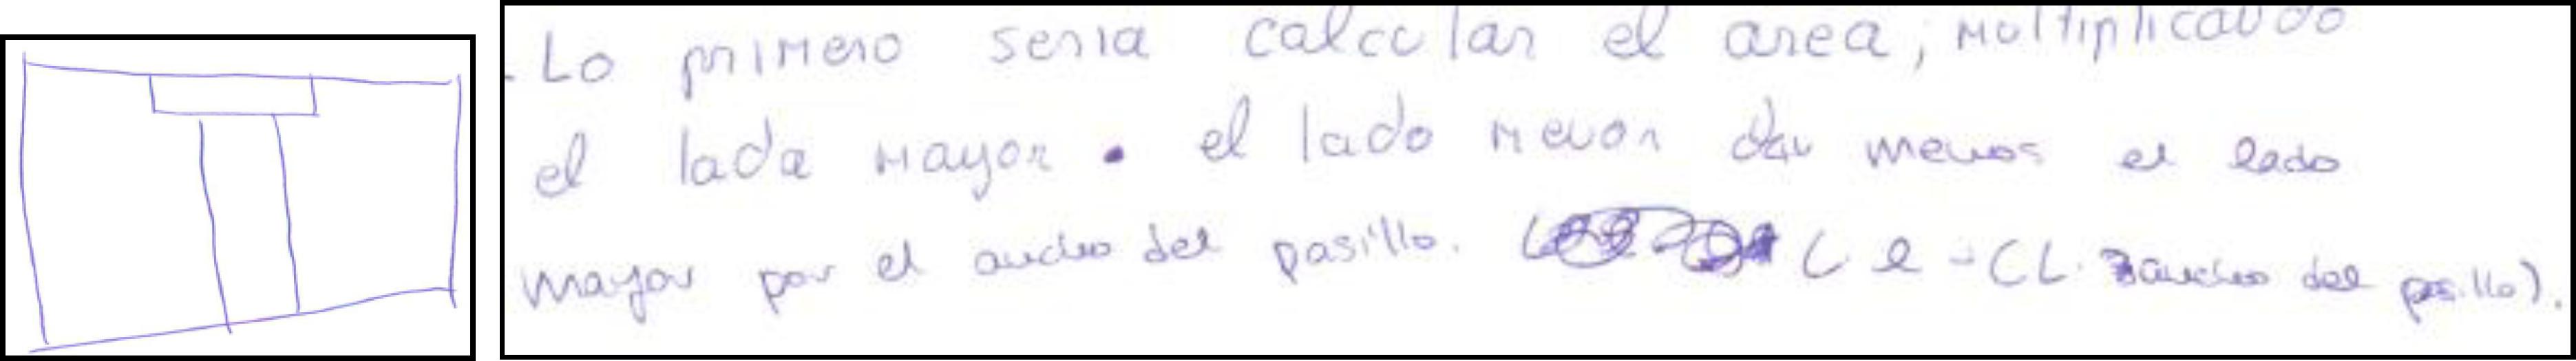 - Lo primero seria calcular el area, multiplicando
el lada mayor · el lado menor menos el lado
mayor por el ancho del pasillo. L. l - (L. ancho del pasillo).